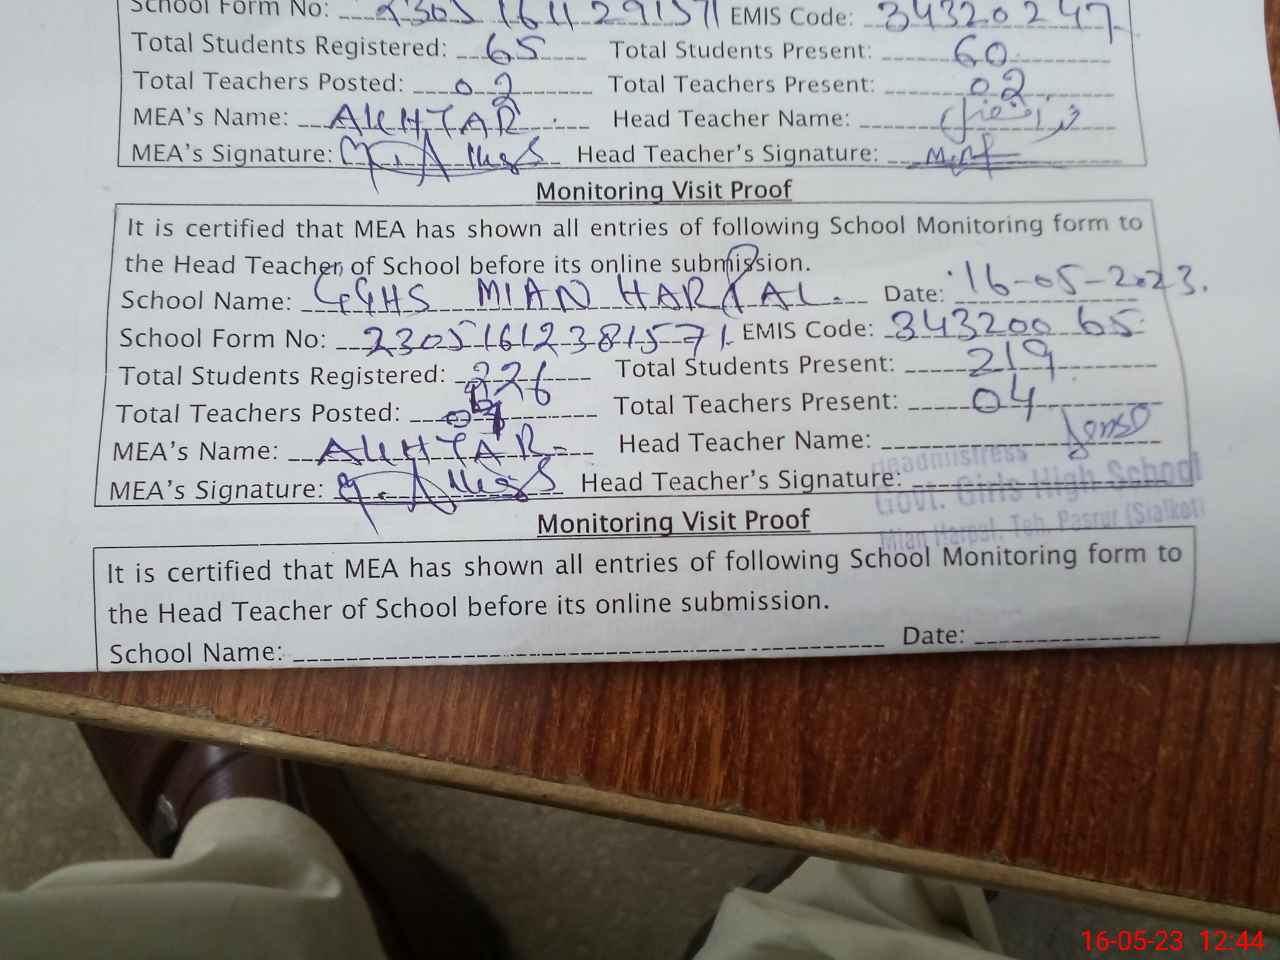 School Form No: 23051611291571 EMIS Code: 34320247
Total Students Registered: 65 Total Students Present: 60
Total Teachers Posted: 02 Total Teachers Present: 02
MEA's Name: AKHTAR Head Teacher Name:
MEA's Signature: Head Teacher's Signature:
Monitoring Visit Proof
It is certified that MEA has shown all entries of following School Monitoring form to
the Head Teacher of School before its online submission.
School Name: GGHS MIAN HARPAL. Date: 16-05-2023.
School Form No: 23051612381571 EMIS Code: 34320065
Total Students Registered: 226 Total Students Present: 219
Total Teachers Posted: 04 Total Teachers Present: 04
MEA's Name: AKHTAR Head Teacher Name:
MEA's Signature: Head Teacher's Signature:
Headmistress
Govt. Girls High School
Mian Harpal, Teh. Pasrur (Sialkot)
Monitoring Visit Proof
It is certified that MEA has shown all entries of following School Monitoring form to
the Head Teacher of School before its online submission.
School Name: Date:
16-05-23 12:44